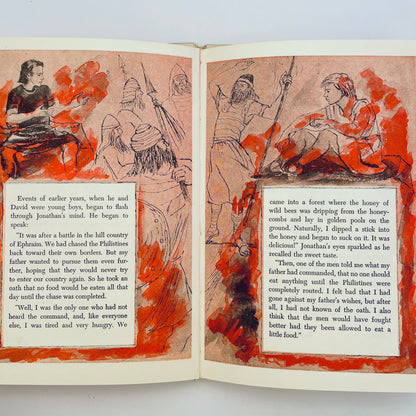 Events of earlier years, when he and
David were young boys, began to flash
through Jonathan's mind. He began to
speak:
"It was after a battle in the hill country
of Ephraim. We had chased the Philistines
back toward their own borders. But my
father wanted to pursue them even fur-
ther, hoping that they would never try
to enter our country again. So he took an
oath that no food would be eaten all that
day until the chase was completed.
"Well, I was the only one who had not
heard the command, and, like everyone
else, I was tired and very hungry. We
came into a forest where the honey of
wild bees was dripping from the honey-
combs and lay in golden pools on the
ground. Naturally, I dipped a stick into
the honey and began to suck on it. It was
delicious!" Jonathan's eyes sparkled as he
recalled the sweet taste.
"Then, one of the men told me what my
father had commanded, that no one should
eat anything until the Philistines were
completely routed. I felt bad that I had
gone against my father's wishes, but after
all, I had not known of the oath. I also
think that the men would have fought
better had they been allowed to eat a
little food."